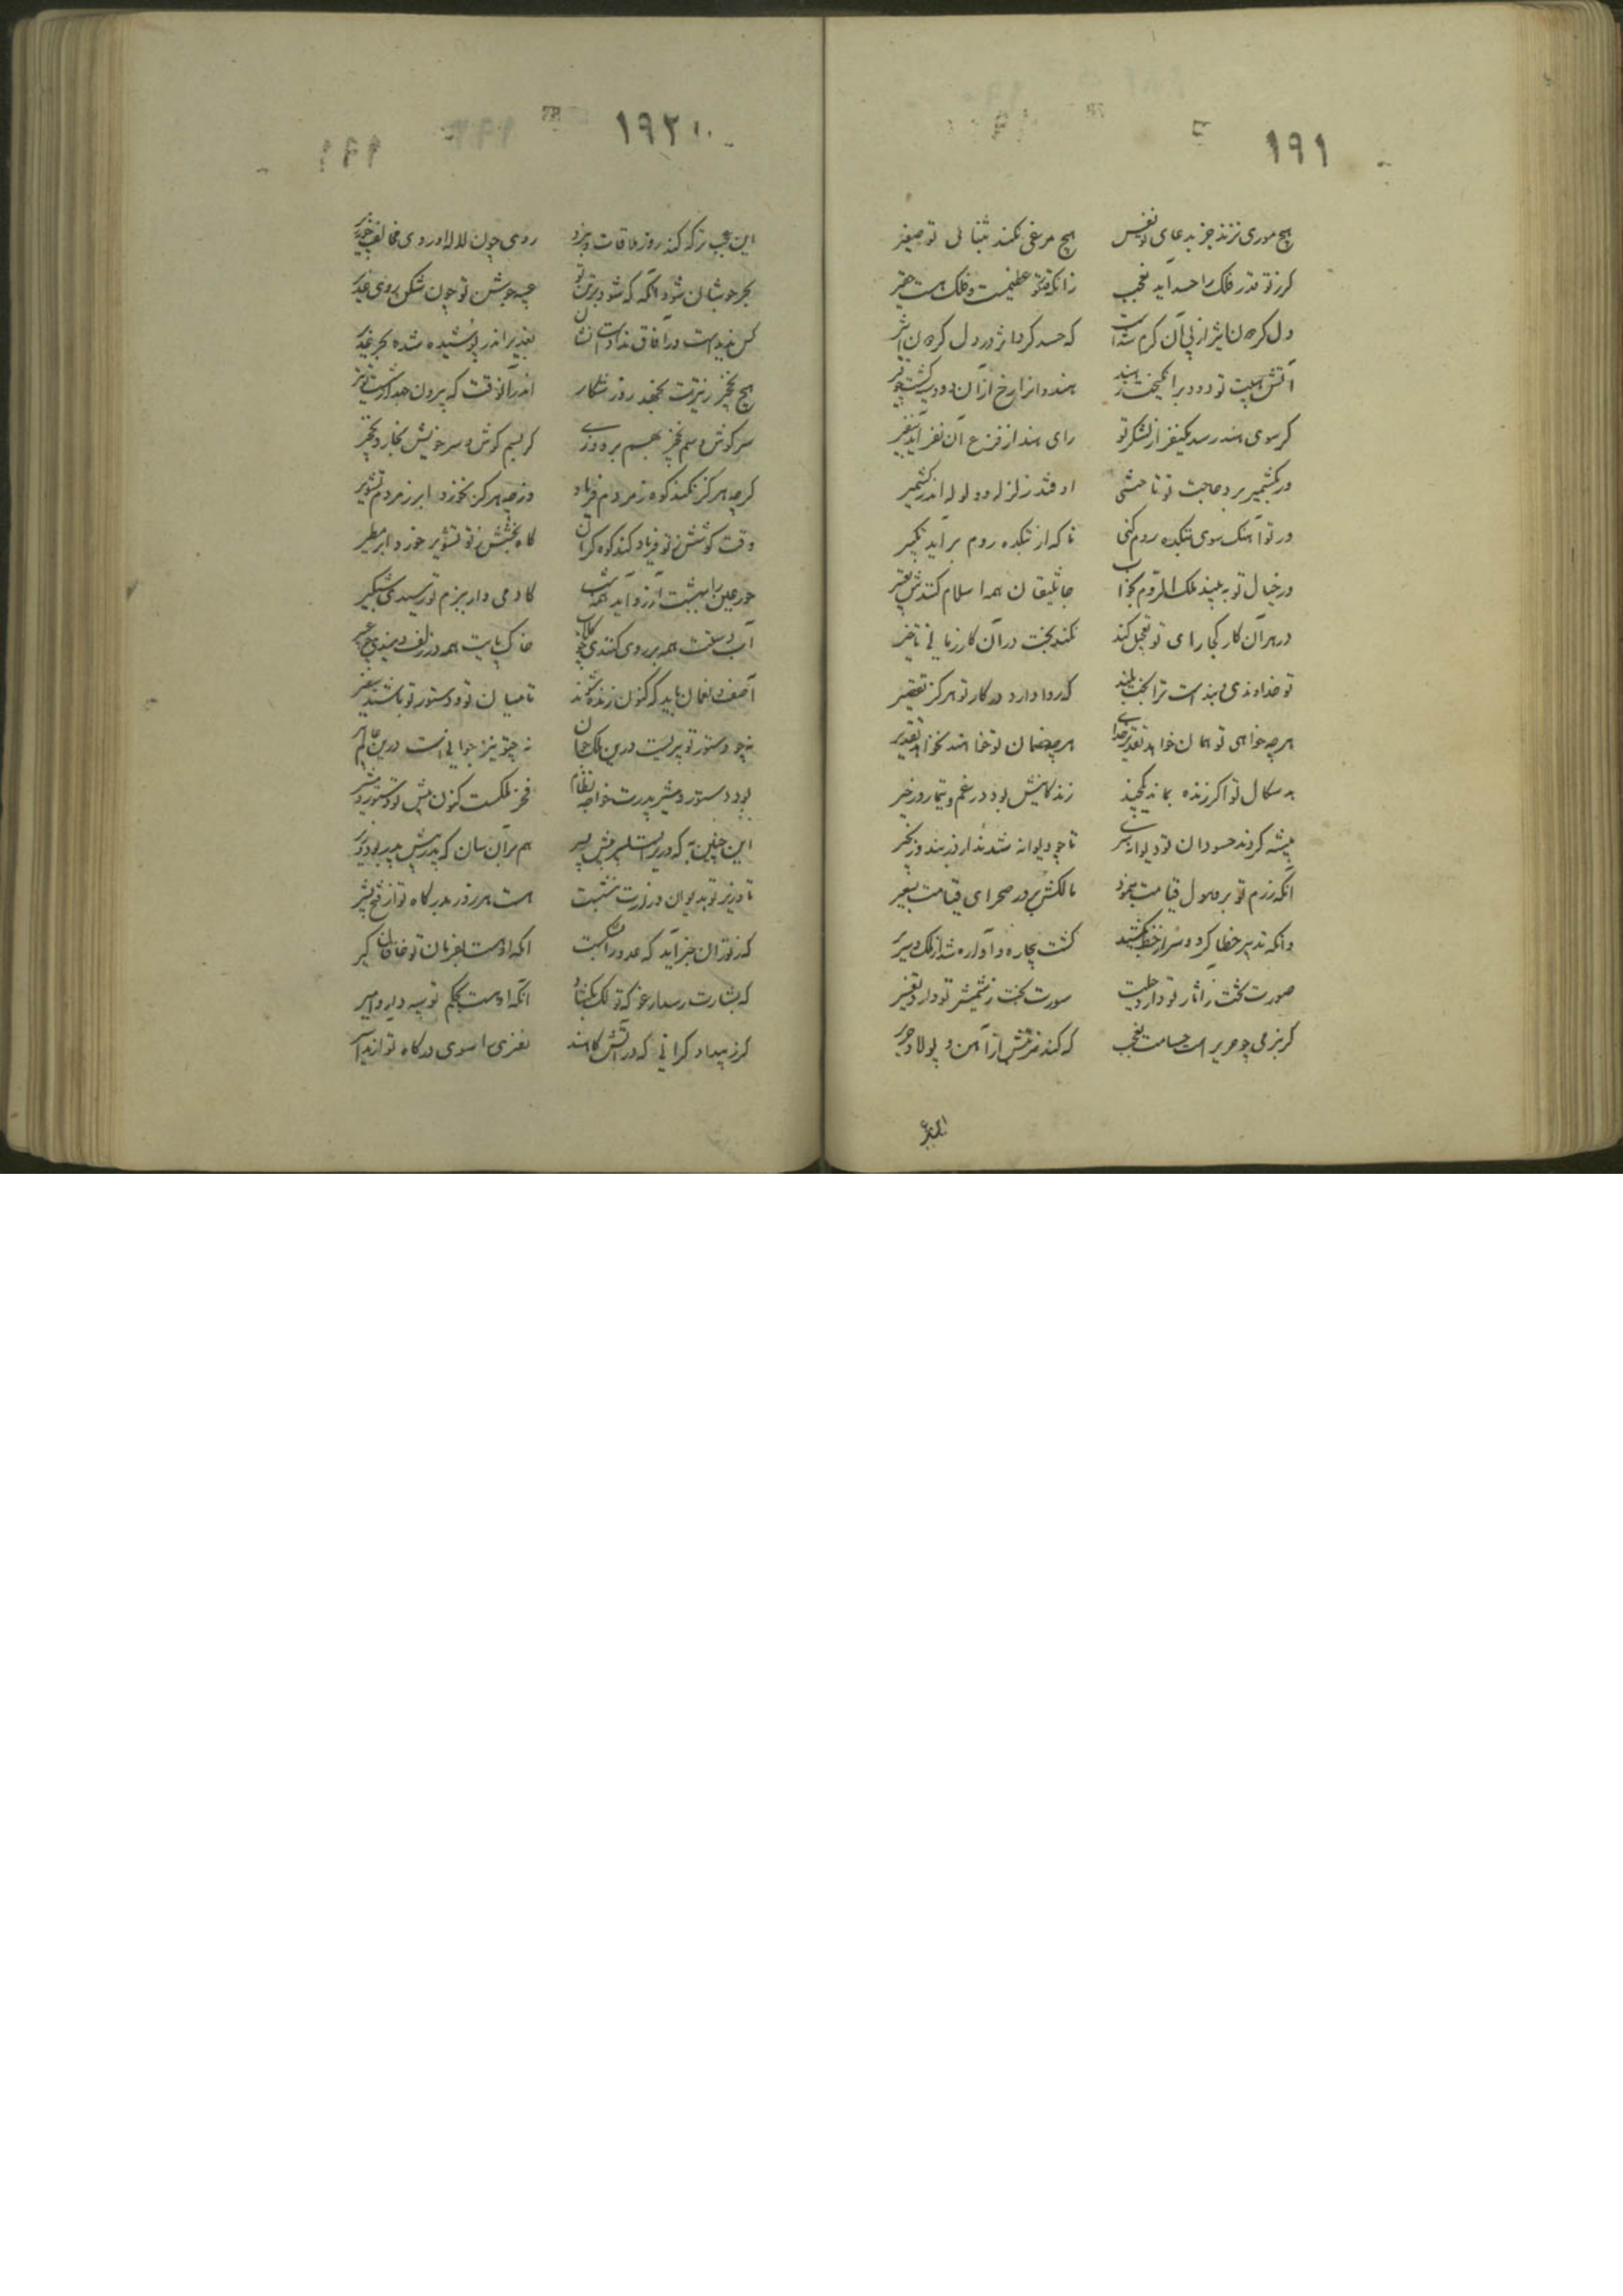 ۱۹۱
هیچ موری نزند جز بدعای تو نفس هیچ مرغی نکند جز بثنای تو صفیر
کر ز تو قدر فلک را حسد آید نه عجب زانکه قدر تو عظیمست و فلک هست حقیر
که حسد کرد اثر در دل
آتش هیبت تو دود برانکیخت ز هند هندوانرا رخ از آن دود سیه کشت چو قیر
کر سوی هند رسد یکنفر از لشکر تو رای هند از فزع آن نفر آید بنفیر
ور بکشمیر برد حاجب تو تا ختنی اوفتد زلزله و ولوله اندر کشمیر
ور تو آهنک سوی بتکده روم کنی تا که از بتکده روم برآید تکبیر
ور خیال تو ببیند ملک الروم بخواب جاثلیقان همه اسلام کنندش تعبیر
در هر آن کار کجا رای تو تعجیل کند نکند بخت در آن کار زمانی تاخیر
تو خداوندی و بنده است ترا بخت بلند که روا دارد در کار تو هرکز تقصیر
هرچه خواهی تو همان خواهد تقدیر خدای هرچه خصمان تو خواهند نخواهد تقدیر
بدسکال تو اکر زنده بماند یکچند زندکانیش بود در غم و تیمار و زحیر
پیشه کردند حسودان تو دیوانه سری تا چو دیوانه شدند از در بند و زنجیر
آنکه رزم تو برو هول قیامت بنمود مالکش برد در صحرای قیامت بسعیر
وانکه تدبیر خطا کرد و سر از خط بکشید کشت بیچاره و آواره شد از ملک و سریر
صورت بخت ز آثار تو دارد سورت بخت ز شمشیر تو دارد تفسیر
کر بنرمی چو حریر است حسامت نه عجب که کند مغزش از آهن و پولاد حریر
۱۹۲
این عجب تر که کند روز ملاقات و نبرد روی چون لاله او روی مخالف چو زریر
بحر جوشان شود آنکه که شود بر تن تو عیبه جوشن تو چون شکن روی غدیر
کس ندیده است در آفاق نداده است نشان بغدیر اندر پوشیده شده بحر غدیر
هیچ نخجیر ز تیرت نجهد روز شکار اندر آنوقت که بیرون جهد از شست تو تیر
سر و کوش و سم نخجیر بهم بر دوزی کر بسم کوش و سر خویش بخارد نخجیر
کرچه هرکز نکند کوه ز مردم فریاد ورچه هرکز نخورد ابر ز مردم تشویر
وقت کوشش ز تو فریاد کند کوه کران کاه بخشش ز تو تشویر خورد ابر مطیر
حور عین را ببهشت آرزو آید همه شب
آب دستت همه بر روی کنند خاک پایت همه در زلف
آصف و لقمان باید که کنون زنده شوند تا میان تو و دستور تو باشند سفیر
نه چو دستور تو پیریست درین ملک جهان نه چو تو نیز جوانی است درین عالم پیر
بود دستور و مشیر پدرت خواجه نظام فخر ملکست کنون پیش تو دستور و مشیر
این چنین به که وزیر است پسر پیش پسر هم بر آن سان که پدر پیش پدر بود وزیر
تا وزیر تو بدیوان وزارت بنشست هست هر روز بدرکاه تو از فتح بشیر
که ز توران خبر آید که عدو را بشکست آنکه او هست بفرمان تو خاقان کبیر
که بشارت رسد از غزنه که ملک بکشاد آنکه او هست بحکم تو سپهدار و امیر
کر ز بیداد کرانی که در آتش نفری را سوی درکاه تو آرند اسیر